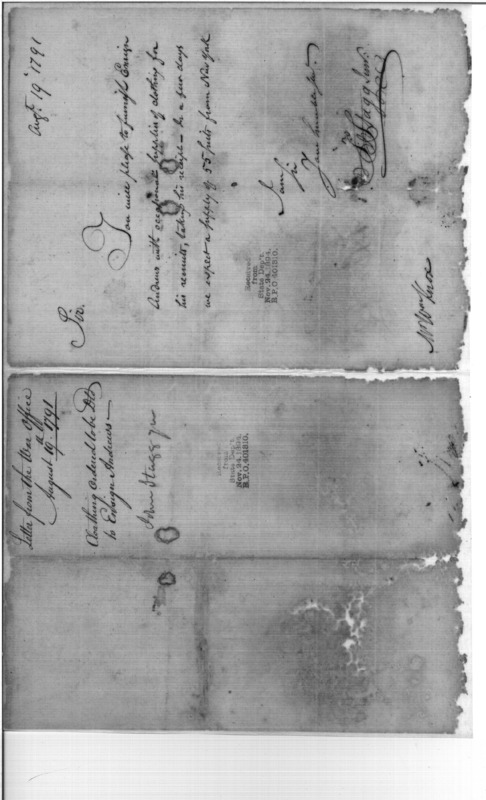 Augt. 19th 1791
Sir.
You will please to furnish Ensign
Andrews with occasional supplies of clothing for
his recruits, taking his receipt – In a few days
we expect a supply of 55 suits from New York
I am Sir
Your humble servt.
Jno Stagg Junr.
Received
from
State Dep't.
Nov. 24, 1894.
R.P.O 401810.
Mr Wm Knox
Letter from the War Office
August 19th 1791
Cloathing ordered to be Dd
to Ensign Andrews —
John Stagg Jr
Received
from
State Dep't.
Nov. 24, 1894.
R.P.O. 401810.